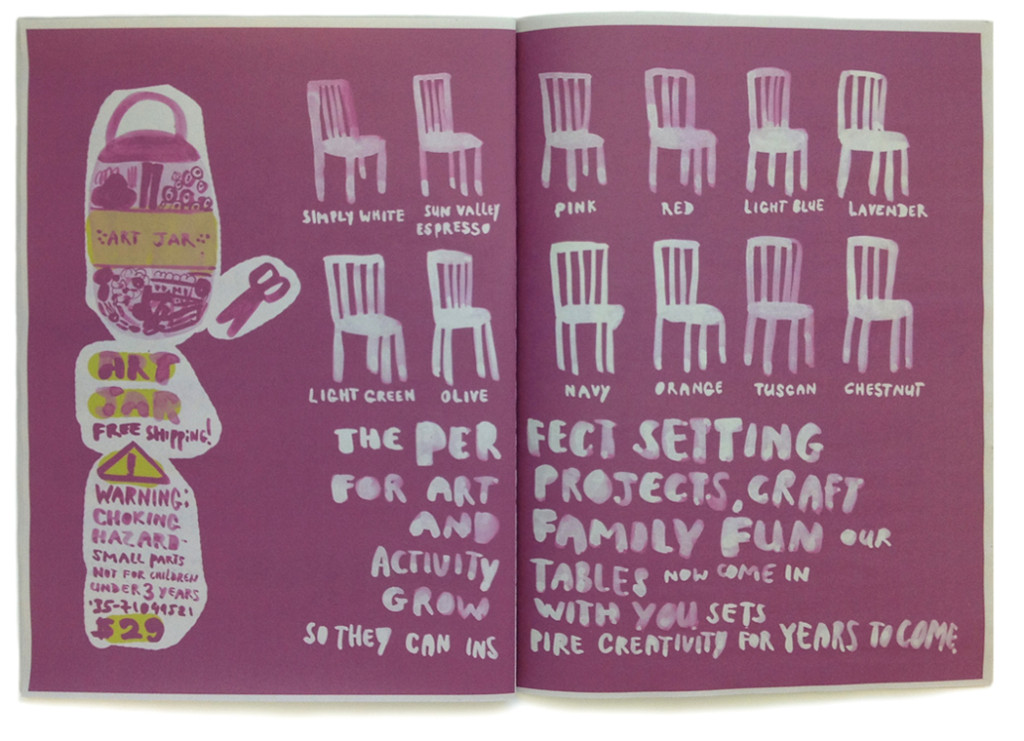 ART JAR
ART
JAR
FREE SHIPPING!
WARNING:
CHOKING
HAZARD-
SMALL PARTS
NOT FOR CHILDREN
UNDER 3 YEARS
'35-71099521
$29
SIMPLY WHITE
SUN VALLEY
ESPRESSO
PINK
RED
LIGHT BLUE
LAVENDER
LIGHT GREEN
OLIVE
NAVY
ORANGE
TUSCAN
CHESTNUT
THE PERFECT SETTING
FOR ART PROJECTS, CRAFT
AND FAMILY FUN OUR
ACTIVITY TABLES NOW COME IN
GROW WITH YOU SETS
SO THEY CAN INSPIRE CREATIVITY FOR YEARS TO COME